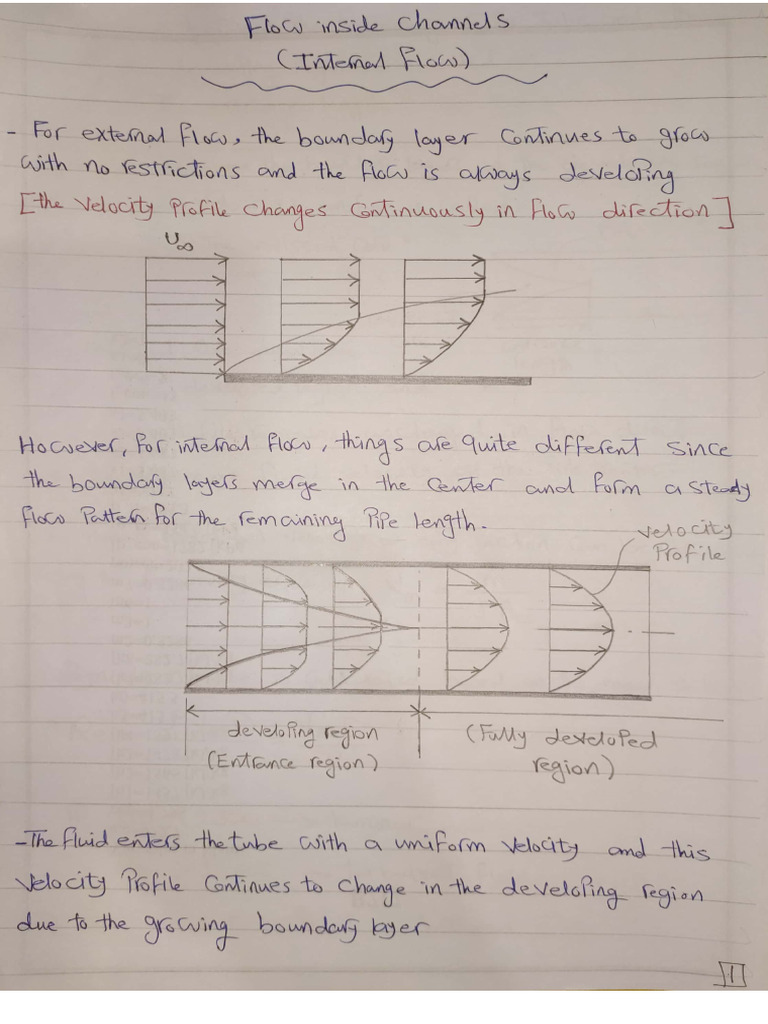 Flow inside Channels
(Internal Flow)
- For external flow, the boundary layer Continues to grow
with no restrictions and the flow is always developing
[the Velocity Profile Changes Continuously in flow direction]
U∞
However, for internal flow, things are quite different since
the boundary layers merge in the center and form a steady
flow Pattern for the remaining Pipe length.
velocity
Profile
developing region
(Entrance region)
(Fully developed
region)
- The fluid enters the tube with a uniform velocity and this
velocity Profile Continues to Change in the developing region
due to the growing boundary layer
1